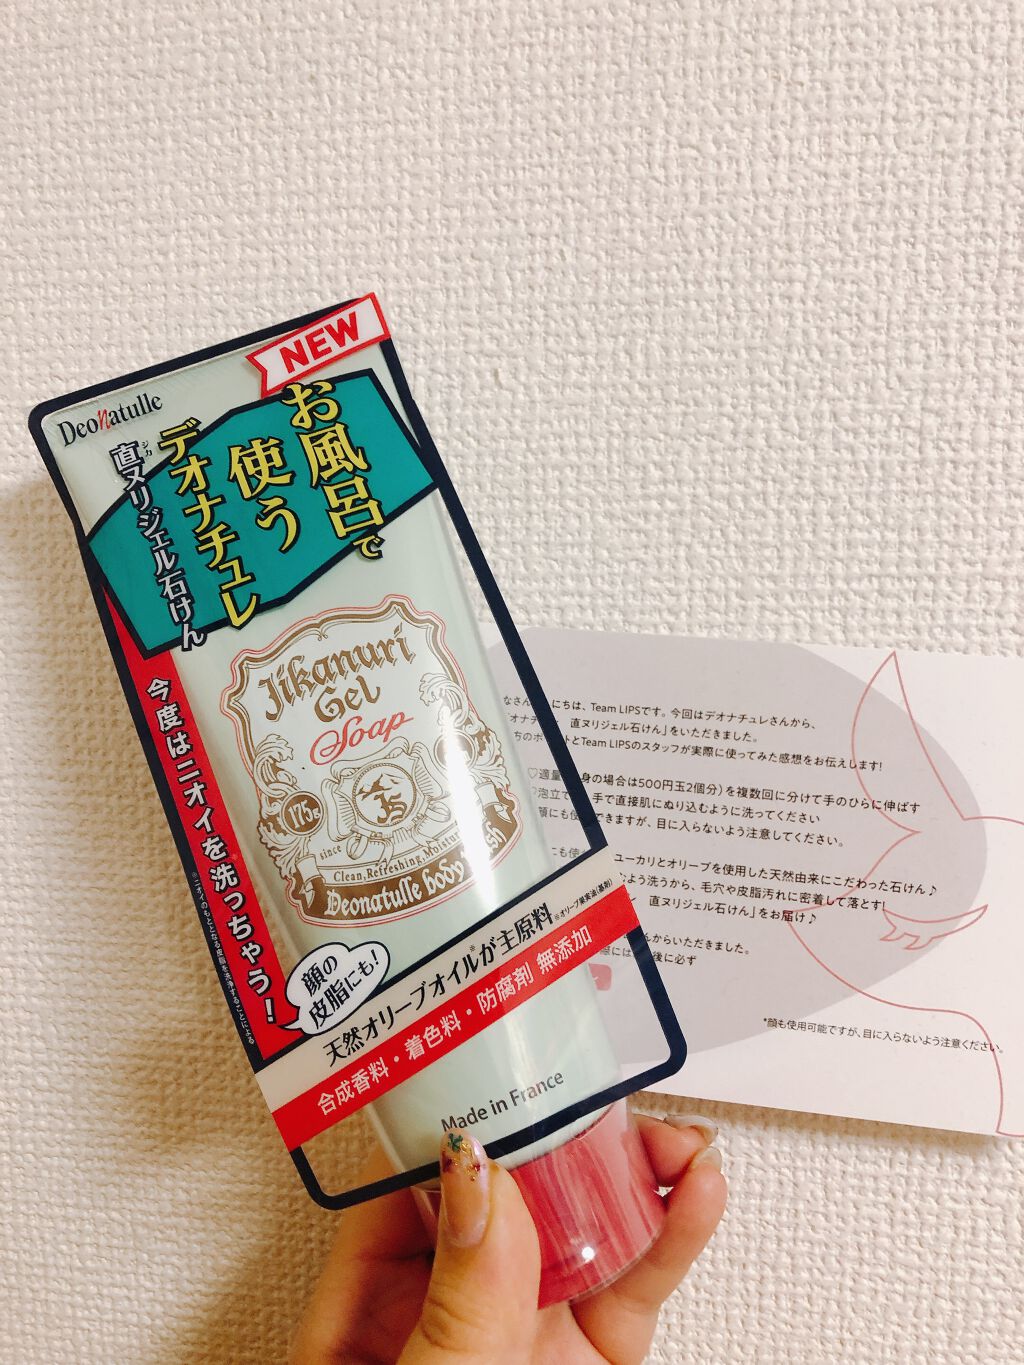 NEW
Deonatulle
お風呂で
使う
デオナチュレ
直ヌリジェル石けん
ジカ
今度はニオイを洗っちゃう!
※ニオイのもととなる皮脂を洗浄することによる
Jikanuri
Gel
Soap
175g
since
Clean, Refreshing, Moistu
Deonatulle body
sh
顔の
皮脂にも!
天然オリーブオイルが主原料
※オリーブ果実油(基剤)
合成香料・着色料・防腐剤 無添加
Made in France
なさん
にちは、Team LIPSです。今回はデオナチュレさんから、
オナチ
直ヌリジェル石けん」をいただきました。
ちのボ
トとTeam LIPSのスタッフが実際に使ってみた感想をお伝えします!
♡適量
身の場合は500円玉2個分)を複数回に分けて手のひらに伸ばす
泡立て
手で直接肌にぬり込むように洗ってください
顔にも使
できますが、目に入らないよう注意してください。
にも使
ユーカリとオリーブを使用した天然由来にこだわった石けん♪
よう洗うから、毛穴や皮脂汚れに密着して落とす!
直ヌリジェル石けん」をお届け♪
んからいただきました。
際には
後に必ず
*顔も使用可能ですが、目に入らないよう注意ください。